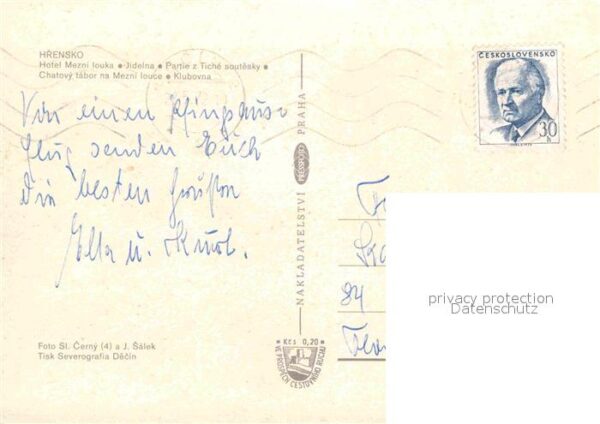 HŘENSKO
Hotel Mezní louka ● Jídelna ● Partie z Tiché soutěsky ●
Chatový tábor na Mezní louce ● Klubovna
ČESKOSLOVENSKO
30
h
Von einem Pfingstaus-
flug senden Euch
die besten Grüße
Ella u. Kurt.
NAKLADATELSTVÍ PRESSFOTO PRAHA
84
privacy protection
Datenschutz
Kčs 0,20
VE PROSPĚCH CESTOVNÍHO RUCHU
Foto Sl. Černý (4) a J. Šálek
Tisk Severografia Děčín